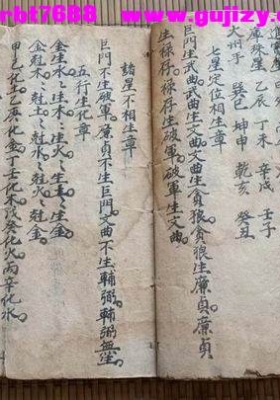 rbt7688 www.gujizy.c
乙辰 丁未 辛戌 壬子
大州子 巽巳 坤申 乾亥 癸丑
七星定位相生章
巨門生武曲武曲生文曲文曲生貪狼貪狼生廉貞廉貞
生祿存祿存生破軍破軍生文曲
諸星不相生章
巨門不生破軍廉貞不生巨門文曲不生輔弼輔弼無生
五行生化章
金生水〻生木〻生火〻生土〻生金
金尅木〻尅土〻尅水〻尅火〻尅金
甲己化土乙庚化金丁壬化木戊癸化火丙辛化水